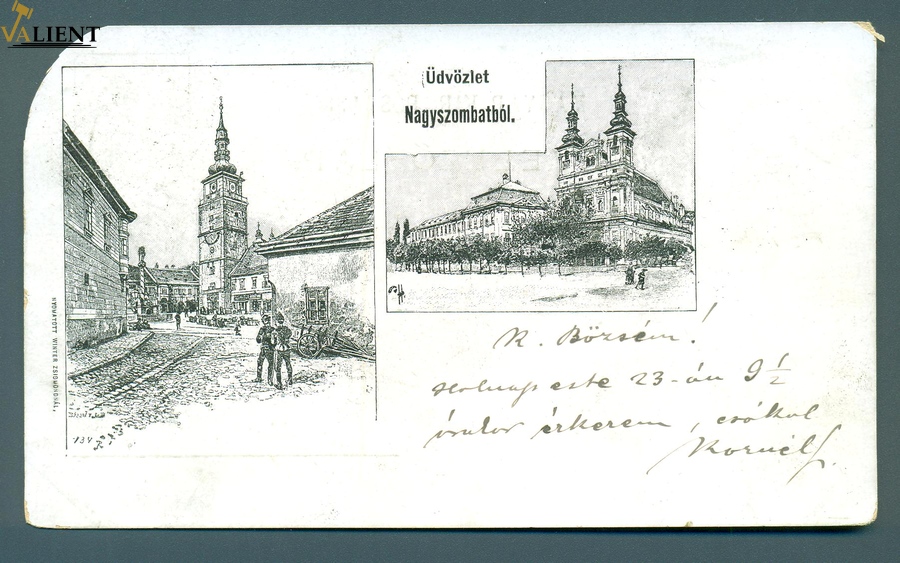 VALIENT
Üdvözlet
Nagyszombatból.
NYOMATOTT WINTER ZSIGMONDNÁL.
134
K. Bözsém!
Holnap este 23-án 9 1/2
órakor érkezem, csókol
Kornél